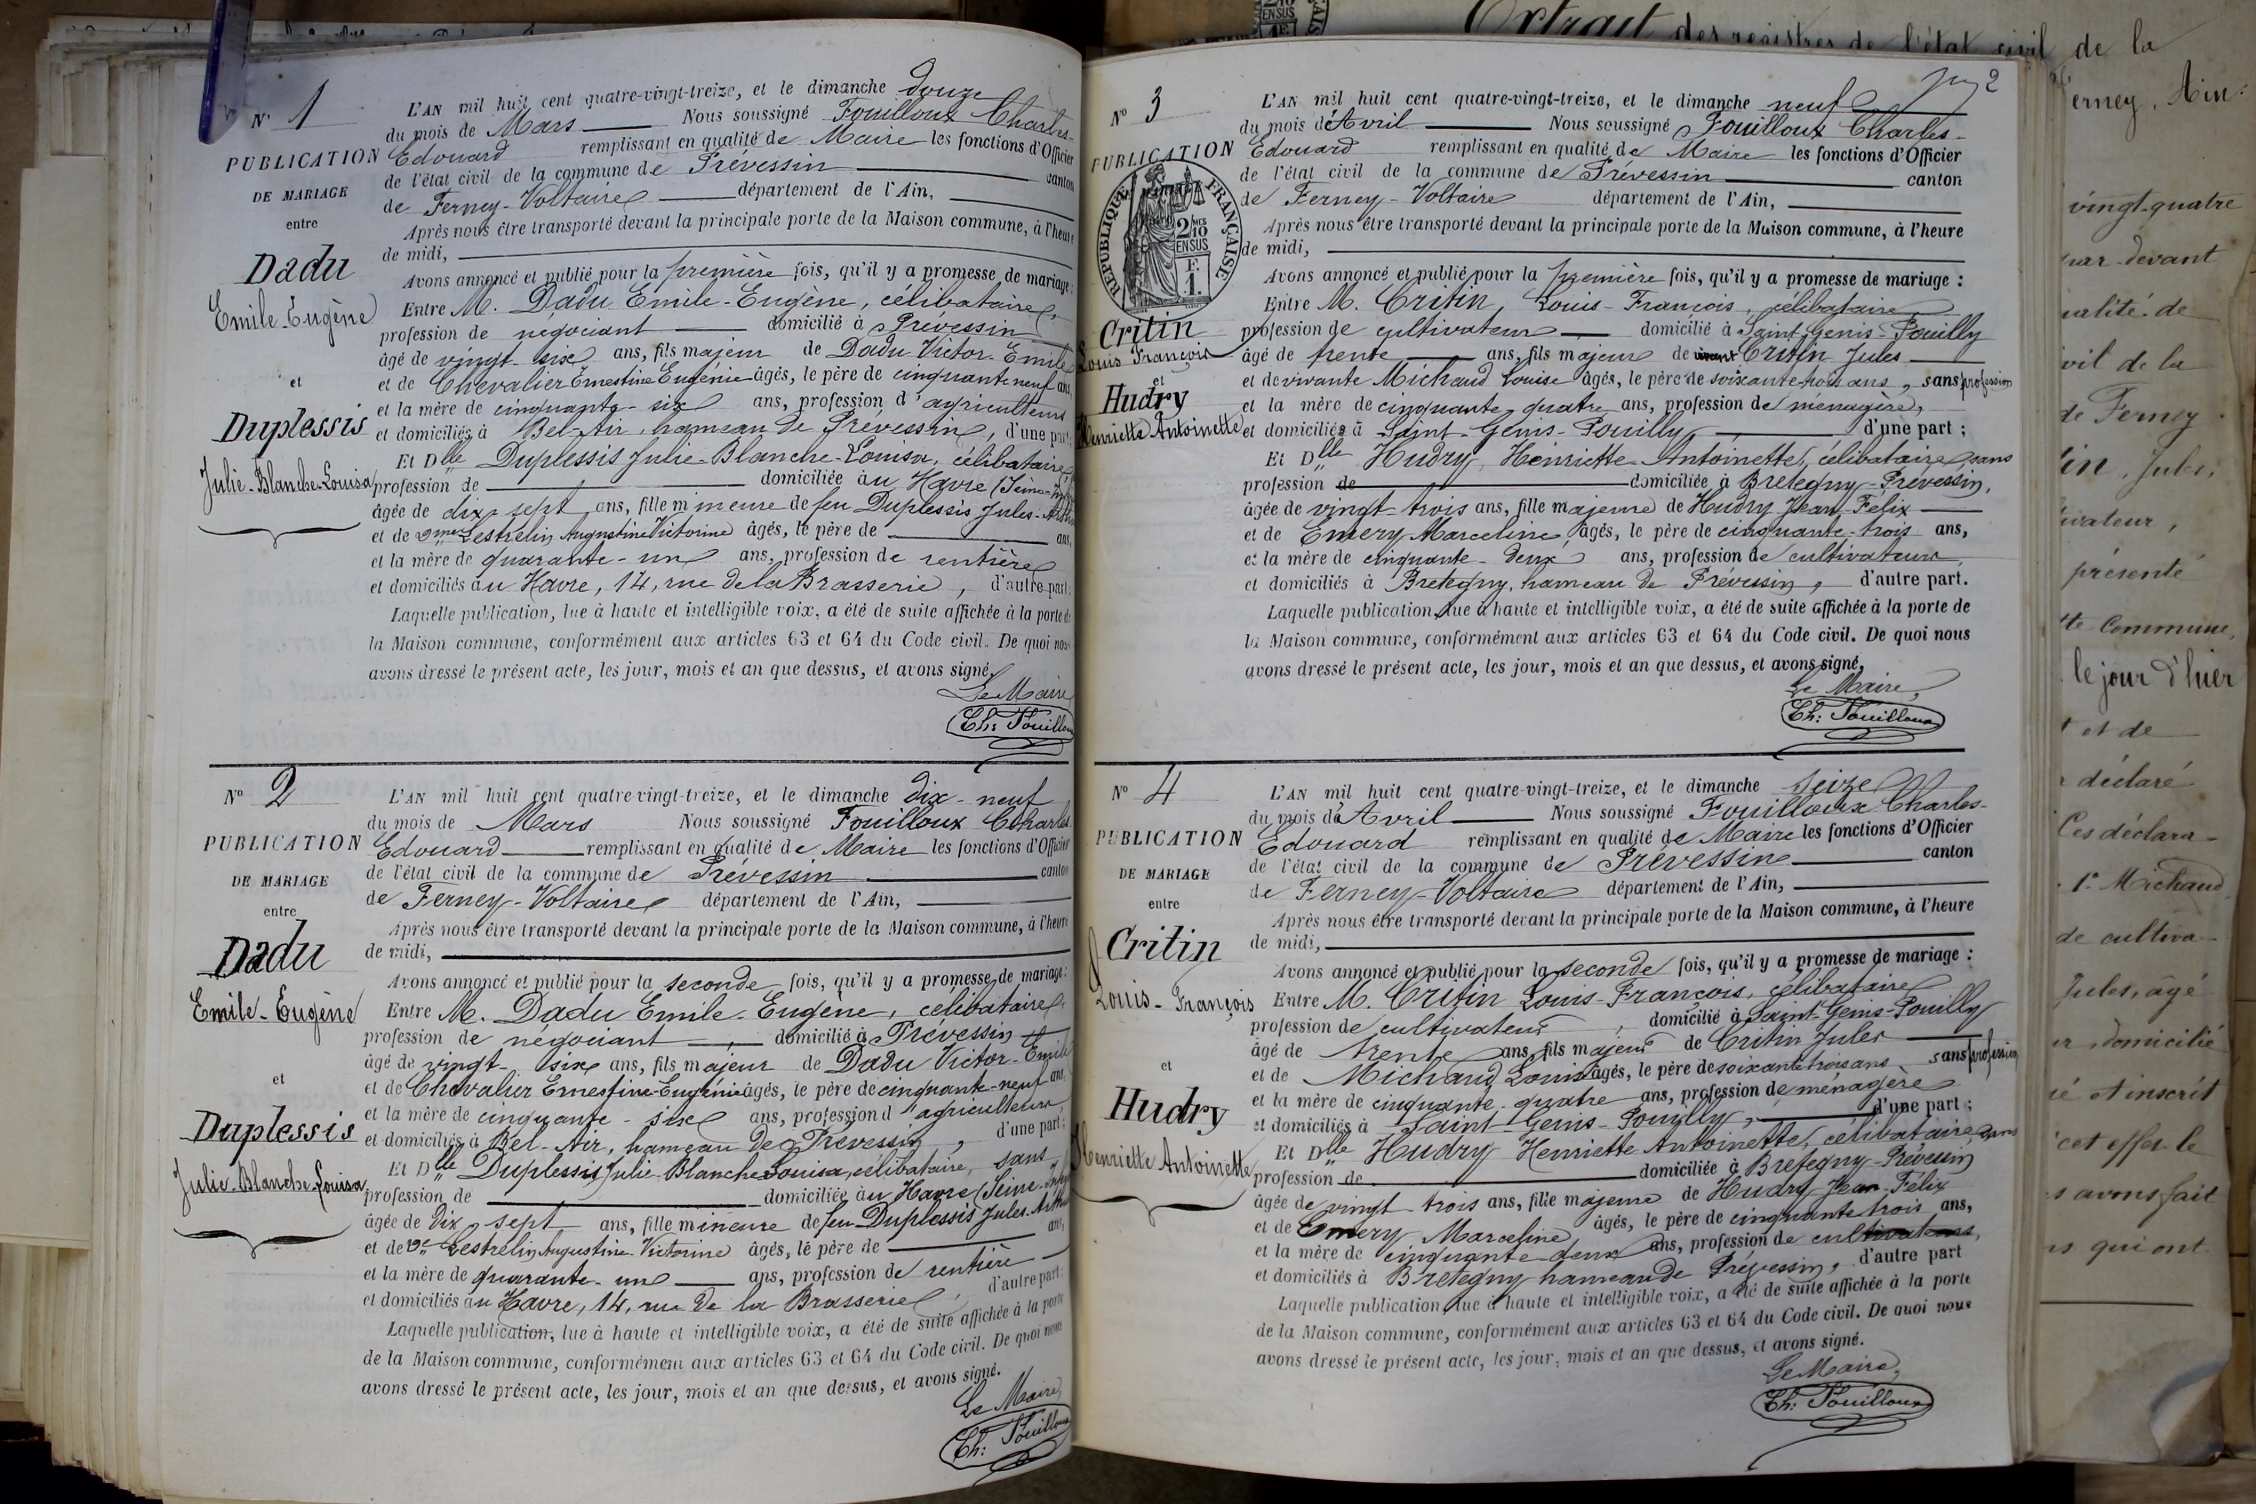 N° 1
PUBLICATION
DE MARIAGE
entre
Dadu
Emile-Eugène
et
Duplessis
Julie-Blanche-Louisa
L'AN mil huit cent quatre-vingt-treize, et le dimanche douze
du mois de Mars Nous soussigné Fouilloux Charles-
Edouard remplissant en qualité de Maire les fonctions d'Officier
de l'état civil de la commune de Prévessin canton
de Ferney-Voltaire département de l'Ain,
Après nous être transporté devant la principale porte de la Maison commune, à l'heure
de midi,
Avons annoncé et publié pour la première fois, qu'il y a promesse de mariage :
Entre M. Dadu Emile-Eugène, célibataire,
profession de négociant domicilié à Prévessin
âgé de vingt-six ans, fils majeur de Dadu Victor-Emile
et de Chevalier Ernestine Eugénie âgés, le père de cinquante neuf ans,
et la mère de cinquante-six ans, profession d'agriculteurs
et domiciliés à Bel-Air, hameau de Prévessin, d'une part;
Et Dlle Duplessis Julie-Blanche-Louisa, célibataire,
profession de domiciliée au Havre (Seine-Infre
âgée de dix-sept ans, fille mineure de feu Duplessis Jules-Arthur
et de Lestrelin Augustine Victorine âgés, le père de ans,
et la mère de quarante-un ans, profession de rentière
et domiciliés au Havre, 14, rue de la Brasserie, d'autre part.
Laquelle publication, lue à haute et intelligible voix, a été de suite affichée à la porte de
la Maison commune, conformément aux articles 63 et 64 du Code civil. De quoi nous
avons dressé le présent acte, les jour, mois et an que dessus, et avons signé,
Le Maire
Ch: Fouilloux
N° 2
PUBLICATION
DE MARIAGE
entre
Dadu
Emile-Eugène
et
Duplessis
Julie-Blanche-Louisa
L'AN mil huit cent quatre-vingt-treize, et le dimanche dix-neuf
du mois de Mars Nous soussigné Fouilloux Charles
Edouard remplissant en qualité de Maire les fonctions d'Officier
de l'état civil de la commune de Prévessin canton
de Ferney-Voltaire département de l'Ain,
Après nous être transporté devant la principale porte de la Maison commune, à l'heure
de midi,
Avons annoncé et publié pour la seconde fois, qu'il y a promesse de mariage :
Entre M. Dadu Emile-Eugène, célibataire,
profession de négociant, domicilié à Prévessin
âgé de vingt-six ans, fils majeur de Dadu Victor-Emile
et de Chevalier Ernestine-Eugénie âgés, le père de cinquante-neuf ans,
et la mère de cinquante-six ans, profession d'agriculteurs
et domiciliés à Bel-Air, hameau de Prévessin, d'une part;
Et Dlle Duplessis Julie-Blanche Louisa, célibataire, sans
profession de domiciliée au Havre (Seine-Infre
âgée de dix-sept ans, fille mineure de feu Duplessis Jules-Arthur
et de Lestrelin Augustine-Victorine âgés, le père de ans,
et la mère de quarante-un ans, profession de rentière
et domiciliés au Havre, 14, rue de la Brasserie, d'autre part.
Laquelle publication, lue à haute et intelligible voix, a été de suite affichée à la porte
de la Maison commune, conformément aux articles 63 et 64 du Code civil. De quoi nous
avons dressé le présent acte, les jour, mois et an que dessus, et avons signé.
Le Maire,
Ch: Fouilloux
2
N° 3
PUBLICATION
RÉPUBLIQUE FRANÇAISE
2/10 EN SUS
1F.
Critin
Louis François
et
Hudry
Henriette Antoinette
L'AN mil huit cent quatre-vingt-treize, et le dimanche neuf
du mois d'Avril Nous soussigné Fouilloux Charles-
Edouard remplissant en qualité de Maire les fonctions d'Officier
de l'état civil de la commune de Prévessin canton
de Ferney-Voltaire département de l'Ain,
Après nous être transporté devant la principale porte de la Maison commune, à l'heure
de midi,
Avons annoncé et publié pour la première fois, qu'il y a promesse de mariage :
Entre M. Critin, Louis-François, célibataire
profession de cultivateur domicilié à Saint-Genis-Pouilly
âgé de trente ans, fils majeur de Critin Jules
et de vivante Michaud Louise âgés, le père de soixante trois ans, sans profession
et la mère de cinquante quatre ans, profession de ménagère,
et domiciliés à Saint-Genis-Pouilly d'une part ;
Et Dlle Hudry, Henriette-Antoinette, célibataire, sans
profession de domiciliée à Bretegny-Prévessin,
âgée de vingt-trois ans, fille majeure de Hudry Jean-Félix
et de Emery Marceline âgés, le père de cinquante-trois ans,
et la mère de cinquante-deux ans, profession de cultivateurs,
et domiciliés à Bretegny, hameau de Prévessin, d'autre part.
Laquelle publication lue à haute et intelligible voix, a été de suite affichée à la porte de
la Maison commune, conformément aux articles 63 et 64 du Code civil. De quoi nous
avons dressé le présent acte, les jour, mois et an que dessus, et avons signé,
Le Maire,
Ch: Fouilloux
N° 4
PUBLICATION
DE MARIAGE
entre
Critin
Louis-François
et
Hudry
Henriette Antoinette
L'AN mil huit cent quatre-vingt-treize, et le dimanche seize
du mois d'Avril Nous soussigné Fouilloux Charles-
Edouard remplissant en qualité de Maire les fonctions d'Officier
de l'état civil de la commune de Prévessin canton
de Ferney-Voltaire département de l'Ain,
Après nous être transporté devant la principale porte de la Maison commune, à l'heure
de midi,
Avons annoncé et publié pour la seconde fois, qu'il y a promesse de mariage :
Entre M. Critin Louis-François, célibataire
profession de cultivateur, domicilié à Saint-Genis-Pouilly
âgé de trente ans, fils majeur de Critin Jules
et de Michaud Louise âgés, le père de soixante trois ans sans profession
et la mère de cinquante quatre ans, profession de ménagère
et domiciliés à Saint-Genis-Pouilly, d'une part ;
Et Dlle Hudry Henriette Antoinette, célibataire, sans
profession de domiciliée à Bretegny-Prévessin
âgée de vingt trois ans, fille majeure de Hudry Jean-Félix
et de Emery Marceline âgés, le père de cinquante trois ans,
et la mère de cinquante deux ans, profession de cultivateurs,
et domiciliés à Bretegny hameau de Prévessin, d'autre part
Laquelle publication lue à haute et intelligible voix, a été de suite affichée à la porte
de la Maison commune, conformément aux articles 63 et 64 du Code civil. De quoi nous
avons dressé le présent acte, les jour, mois et an que dessus, et avons signé.
Le Maire,
Ch: Fouilloux
Extrait des registres de l'état civil de la
erney, Ain.
vingt-quatre
par-devant
ualité de
ivil de la
de Ferney
tin, Jules,
ivateur,
présenté
tte Commune,
le jour d'hier
t et de
déclaré
Ces déclara-
1° Michaud
de cultiva-
Jules, âgé
domicilié
né et inscrit
cet effet le
s avons fait
ns qui ont